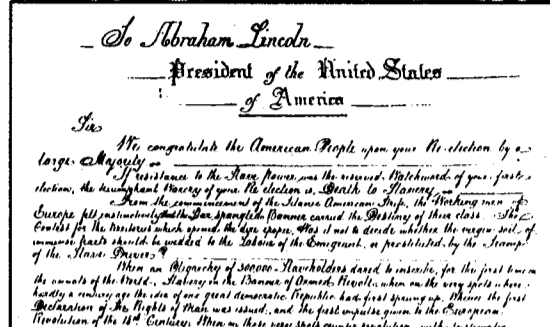 To Abraham Lincoln
President of the United States
of America
Sir
We congratulate the American People upon your Re-election by a
large Majority.
If resistance to the Slave Power was the reserved Watchword of your first
election, the triumphant Warcry of your Re election is, Death to Slavery.
From the commencement of the Titanic American Strife, the Working men of
Europe felt instinctively that the Star spangled Banner carried the Destiny of their class. The
Contest for the territories which opened the dire epopee, Was it not to decide whether the virgin soil of
immense tracts should be wedded to the Labour of the Emigrant, or prostituted by the Tramp
of the Slave Driver?
When an Oligarchy of 300.000 Slaveholders dared to inscribe, for the first time in
the annals of the World, Slavery on the Banner of Armed Revolt, when on the very spots where
hardly a century ago the idea of one great democratic Republic had first sprung up, Whence the first
Declaration of the Rights of Man was issued, and the first impulse given to the European
Revolution of the 18th Century, When on those very spots counter revolution, with